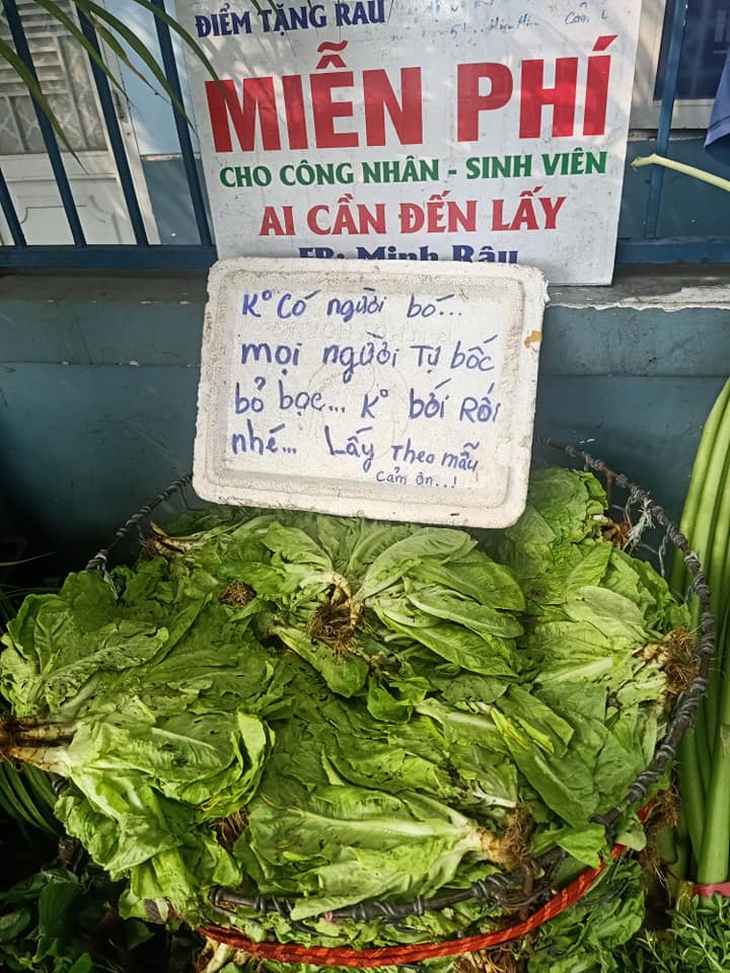 ĐIỂM TẶNG RAU
MIỄN PHÍ
CHO CÔNG NHÂN - SINH VIÊN
AI CẦN ĐẾN LẤY
FB: Minh Râu
K° Có người bó...
mọi người Tự bốc
bỏ bọc... K° bới Rối
nhé... Lấy Theo mẫu
cảm ơn..!